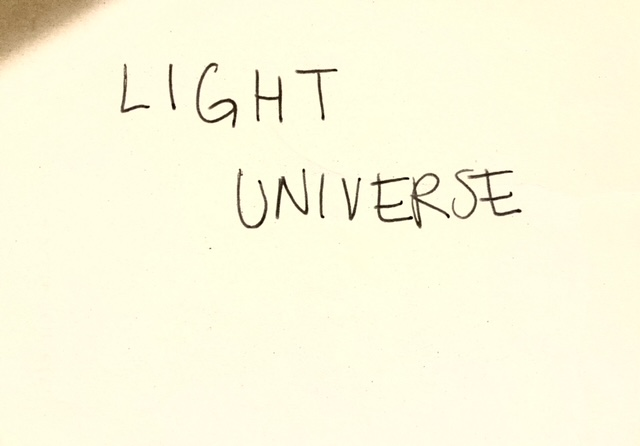 LIGHT
UNIVERSE